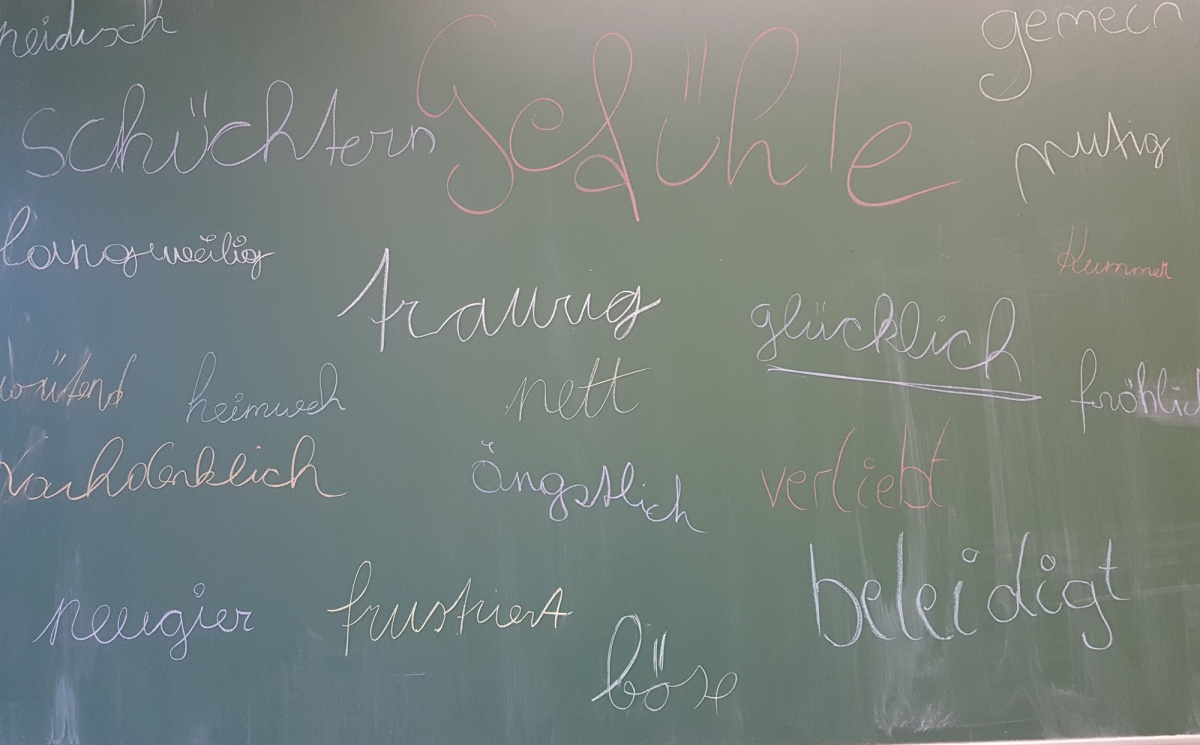 neidisch
gemein
schüchtern
Gefühle
mutig
langweilig
Kummer
traurig
glücklich
wütend
heimweh
nett
fröhlich
Nachdenklich
ängstlich
verliebt
neugier
frustriert
beleidigt
böse